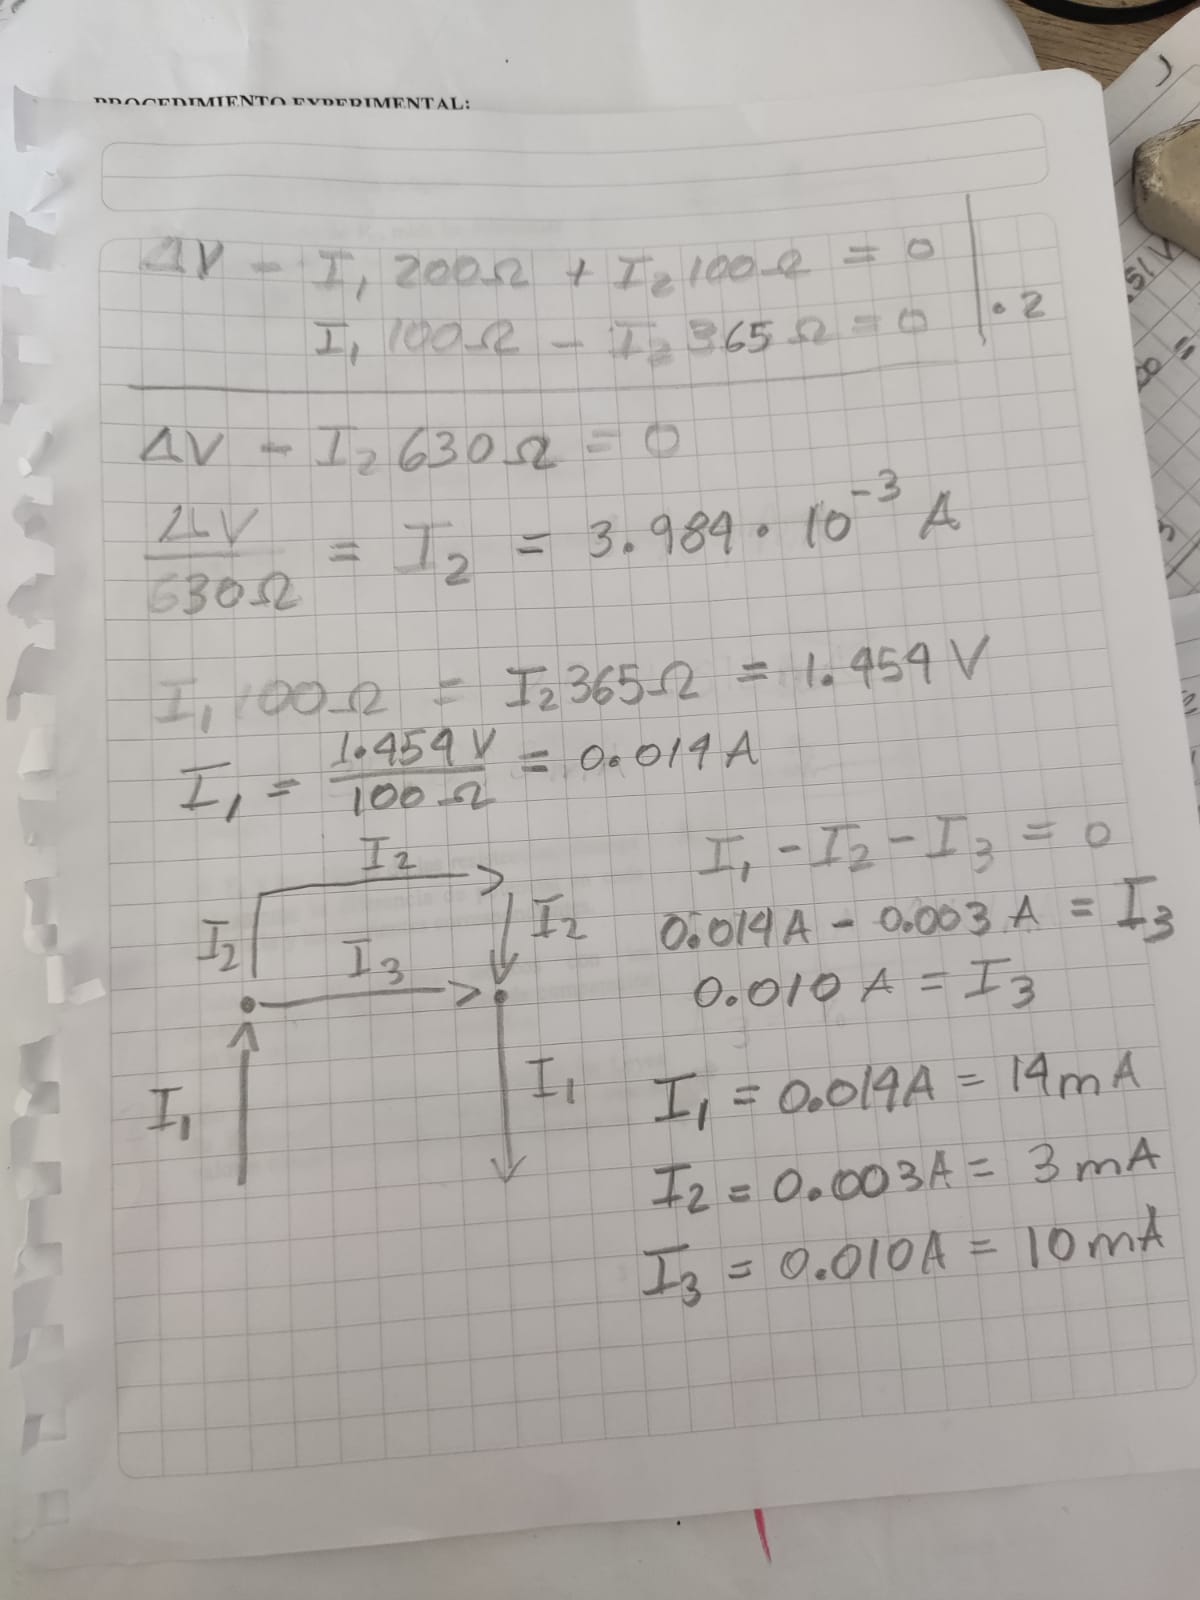 PROCEDIMIENTO EXPERIMENTAL:
ΔV - I₁ 200Ω + I₂ 100Ω = 0
I₁ 100Ω - I₂ 365Ω = 0 | · 2
ΔV - I₂ 630Ω = 0
ΔV / 630Ω = I₂ = 3.984 · 10⁻³ A
I₁ 100Ω = I₂ 365Ω = 1.454 V
I₁ = 1.454 V / 100 Ω = 0.014 A
I₂
I₂
I₂
I₃
I₁
I₁
I₁ - I₂ - I₃ = 0
0.014 A - 0.003 A = I₃
0.010 A = I₃
I₁ = 0.014A = 14 mA
I₂ = 0.003A = 3 mA
I₃ = 0.010A = 10 mA